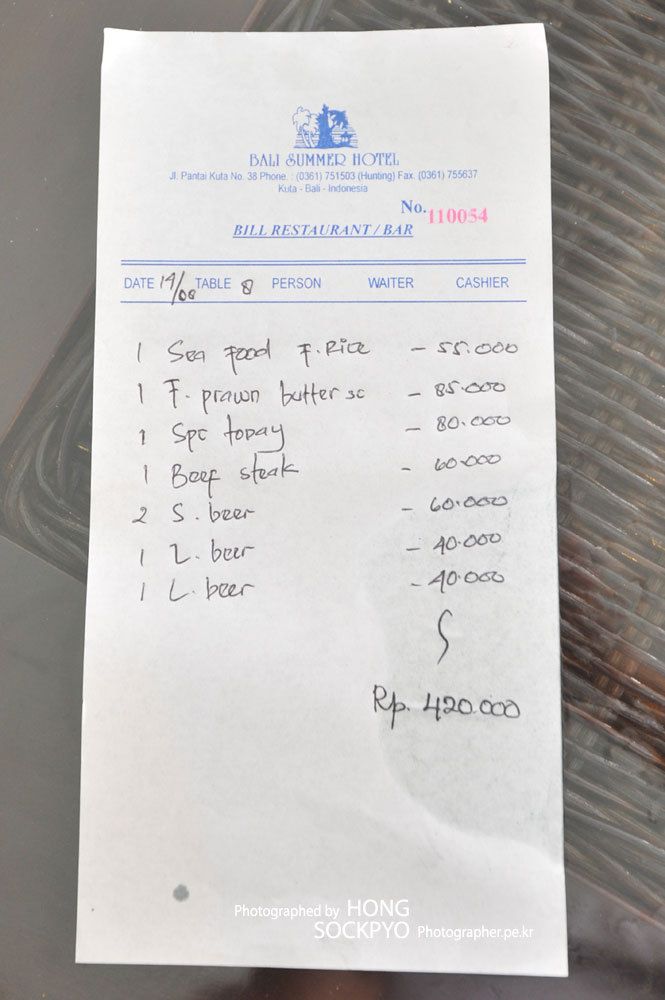 BALI SUMMER HOTEL
Jl. Pantai Kuta No. 38 Phone. : (0361) 751503 (Hunting) Fax. (0361) 755637
Kuta - Bali - Indonesia
No. 110054
BILL RESTAURANT / BAR
DATE 14/08 TABLE 8 PERSON WAITER CASHIER
1 Sea food F. Rice - 55.000
1 F. prawn butter sc - 85.000
1 Spc today - 80.000
1 Beef steak - 60.000
2 S. beer - 60.000
1 L. beer - 40.000
1 L. beer - 40.000
Rp. 420.000
Photographed by HONG
SOCKPYO Photographer.pe.kr